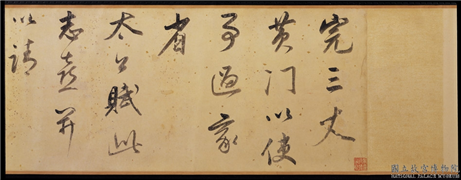 完三丈
黄门以使
事過家
省
太公賦此
志喜并
以請
國立故宮博物院
NATIONAL PALACE MUSEUM